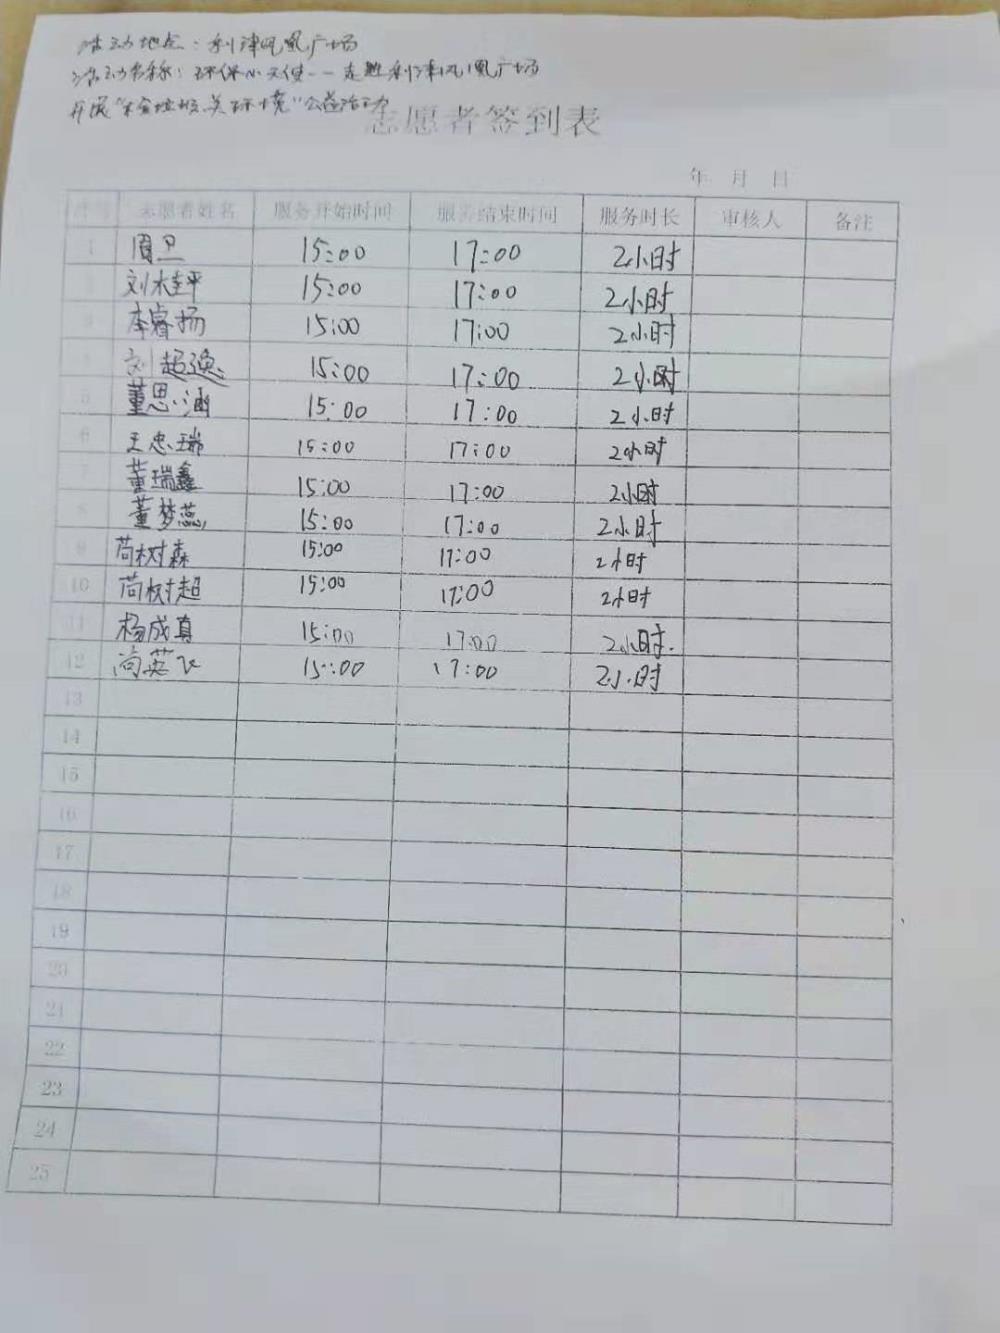 活动地点：利津凤凰广场
活动名称：环保小天使--走进利津凤凰广场
开展"捡垃圾美环境"公益活动
志愿者签到表
年 月 日
序号 志愿者姓名 服务开始时间 服务结束时间 服务时长 审核人 备注
1 周卫 15:00 17:00 2小时
2 刘桂平 15:00 17:00 2小时
3 李睿扬 15:00 17:00 2小时
4 刘超逸 15:00 17:00 2小时
5 董思涵 15:00 17:00 2小时
6 王忠瑞 15:00 17:00 2小时
7 董瑞鑫 15:00 17:00 2小时
8 董梦蕊 15:00 17:00 2小时
9 苘树森 15:00 17:00 2小时
10 苘树超 15:00 17:00 2小时
11 杨成真 15:00 17:00 2小时.
12 尚英飞 15:00 17:00 2小时
13
14
15
16
17
18
19
20
21
22
23
24
25